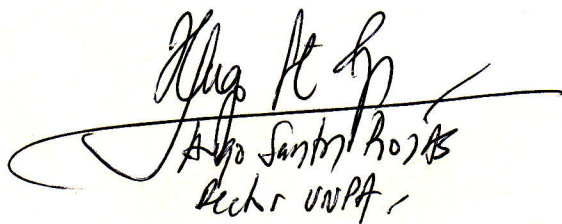 Hugo
Hugo Santos Rojas
Rector UNPA